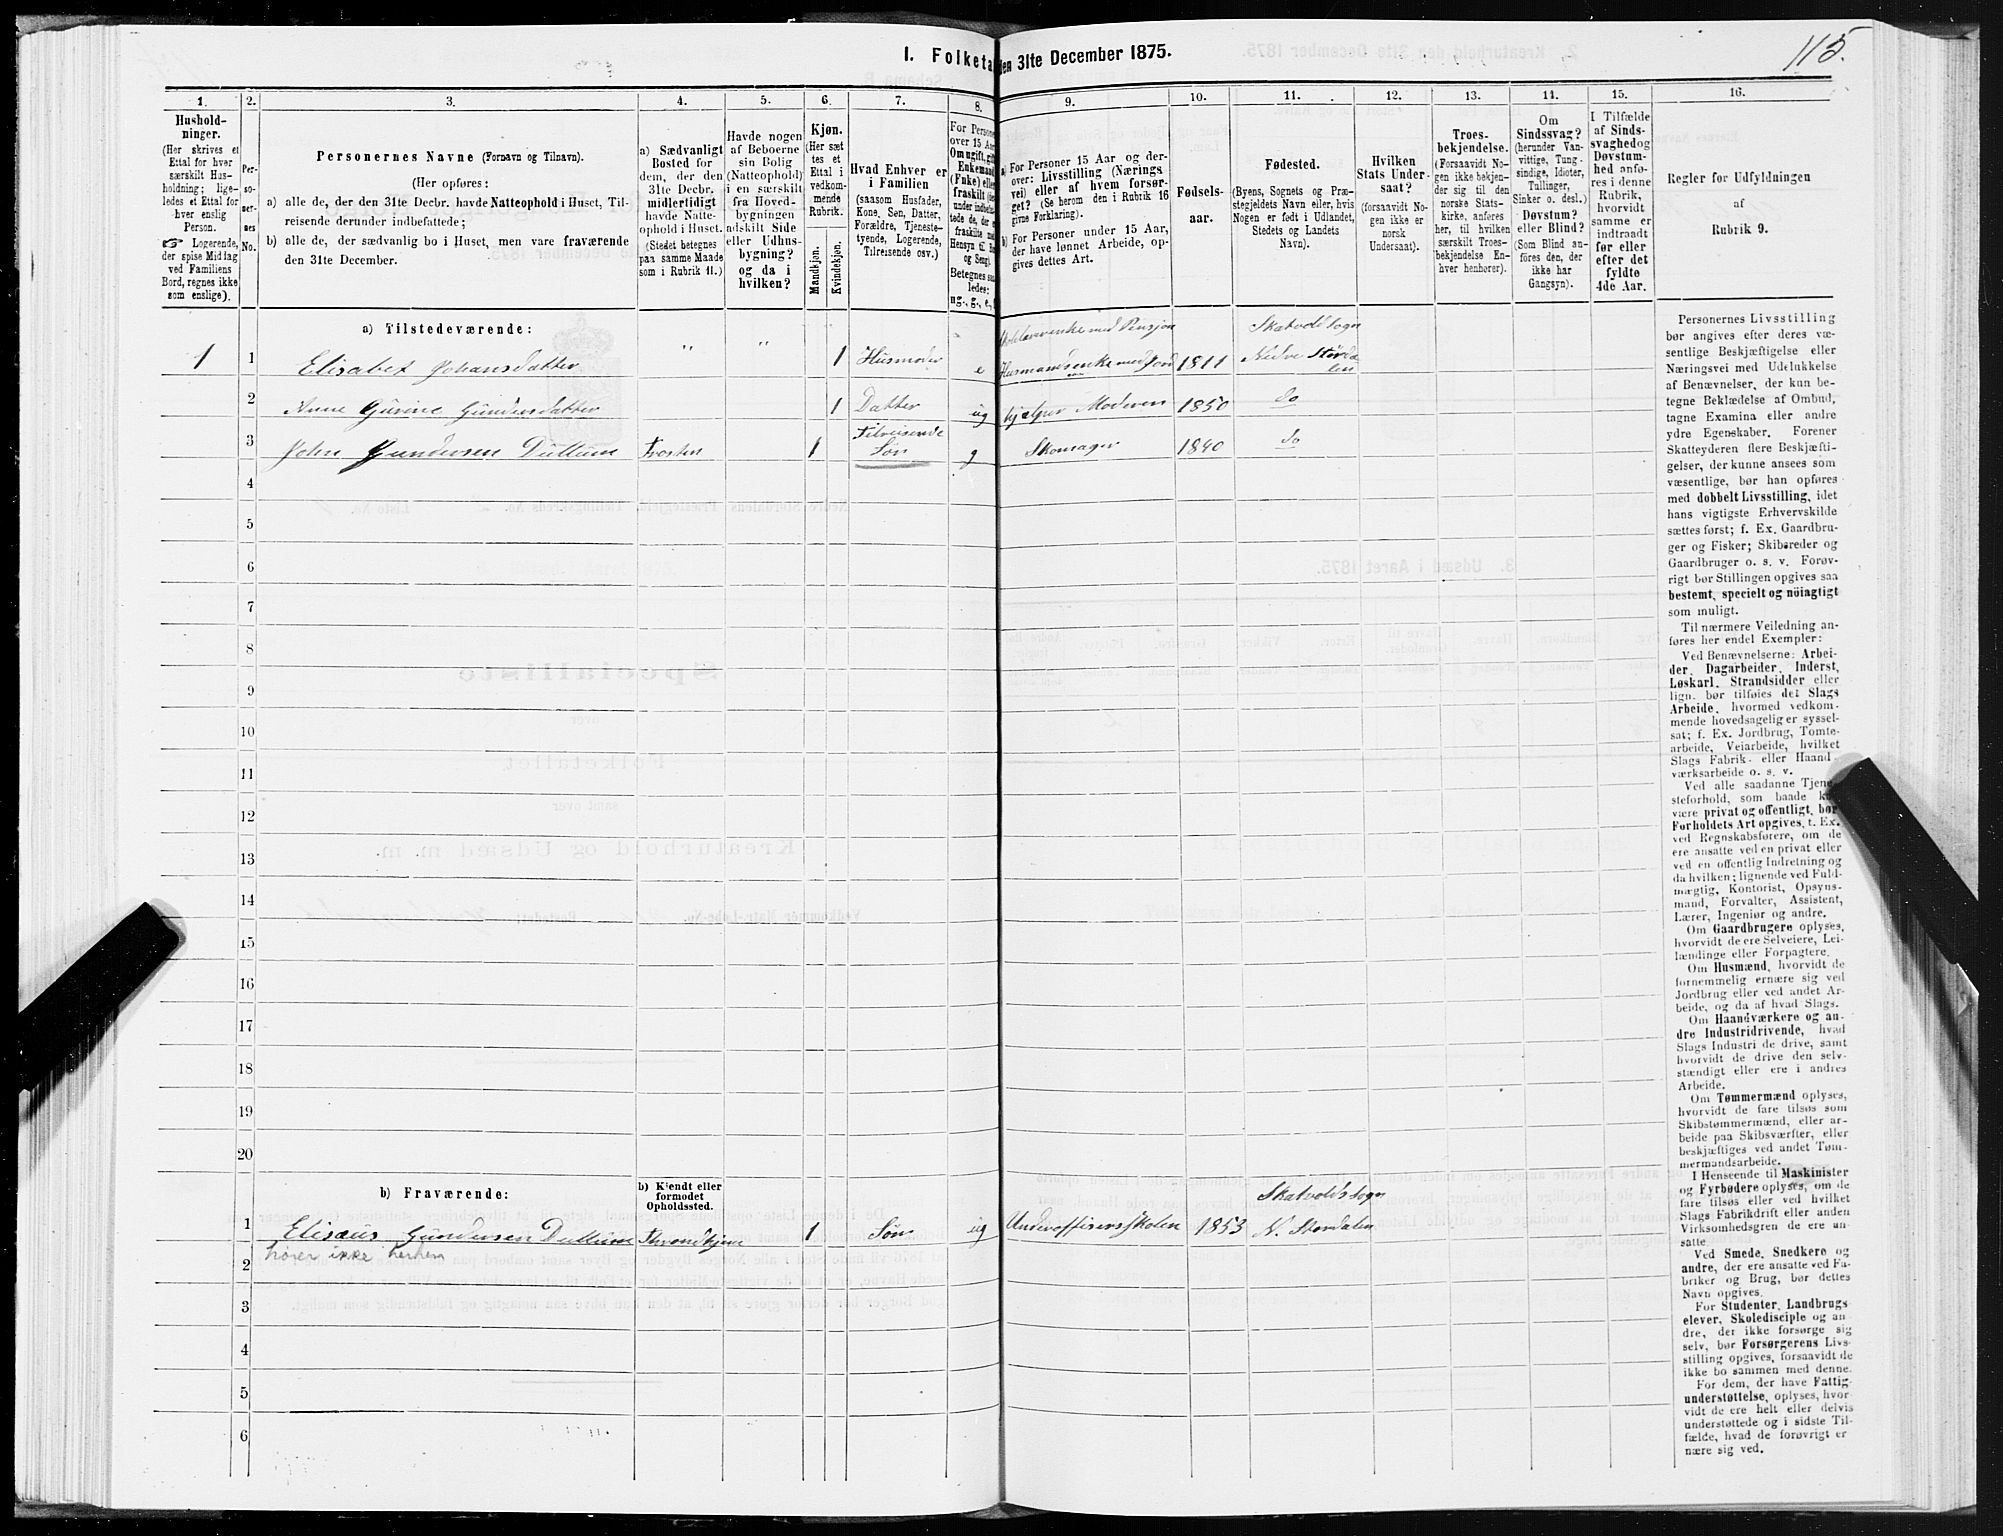 115.
I. Folketa
den 31te December 1875.
1.
2.
3.
4.
5.
6.
7.
8.
9.
10.
11.
12.
13.
14.
15.
16.
Hushold-
ninger.
(Her skrives et
Ettal for hver
særskilt Hus-
holdning; lige-
ledes et Ettal for
hver enslig
Person.
☞ Logerende,
der spise Middag
ved Familiens
Bord, regnes ikke
som enslige).
Per-
so-
ner-
nes
No.
Personernes Navne (Fornavn og Tilnavn).
(Her opføres:
a) alle de, der den 31te Decbr. havde Natteophold i Huset, Til-
reisende derunder indbefattede;
b) alle de, der sædvanlig bo i Huset, men vare fraværende
den 31te December.
a) Sædvanligt
Bosted for
dem, der den
31te Decbr.
midlertidigt
havde Natte-
ophold i Huset.
(Stedet betegnes
paa samme Maade
som i Rubrik 11.)
Havde nogen
af Beboerne
sin Bolig
(Natteophold)
i en særskilt
fra Hoved-
bygningen
adskilt Side
eller Udhus-
bygning?
og da i
hvilken?
Kjøn.
(Her sæt
tes et
Ettal i
vedkom-
mende
Rubrik.
Mandkjøn.
Kvindekjøn.
Hvad Enhver er
i Familien
(saasom Husfader,
Kone, Søn, Datter,
Forældre, Tjeneste-
tyende, Logerende,
Tilreisende osv.)
For Persone
over 15 Aar
Om ugift, gift
Enkemand
(Enke) eller
fraskilt (der
under indbefat-
tede de, der
fraskilte med
Hensyn til Bo
og Seng).
Betegnes saa
ledes:
ug., g., e.,
a) For Personer 15 Aar og der-
over: Livsstilling (Nærings
vei) eller af hvem forsør-
get? (Se herom den i Rubrik 16
givne Forklaring).
b) For Personer under 15 Aar,
der have lønnet Arbeide, op-
gives dettes Art.
Fødsels-
aar.
Fødested.
(Byens, Sognets og Præ-
stegjeldets Navn eller, hvis
Nogen er født i Udlandet,
Stedets og Landets
Navn).
Hvilken
Stats Under-
saat?
(forsaavidt No-
gen ikke er
norsk
Undersaat).
Troes-
bekjendelse.
(Forsaavidt No-
gen ikke bekjen-
der sig til den
norske Stats-
kirke, anføres
her, til hvilken
særskilt Troes-
bekjendelse En-
hver henhører).
Om
Sindssvag?
(herunder Van-
vittige, Tung-
sindige, Idioter,
Tullinger,
Sinker o. desl.)
Døvstum?
eller Blind?
(Som Blind an-
føres den, der
ikke har
Gangsyn).
I Tilfælde
af Sinds-
svaghed og
Døvstum-
hed anfø-
res i denne
Rubrik,
hvorvidt
samme er
indtraadt
før eller
efter det
fyldte
4de Aar.
Regler for Udfyldningen
af
Rubrik 9.
a) Tilstedeværende:
1 1 Elisabet Johansdatter " " 1 Husmoder e Husmandsenke med Jord 1811 Skatvold Sogn Nedre Størdalen
2 Anne Gurine Gundersdatter 1 Datter ug hjelper Moderen 1850 do
3 John Gundersen Dullum Frosten 1 Tilreisende Søn g Skomager 1840 do
4
5
6
7
8
9
10
11
12
13
14
15
16
17
18
19
20
b) Fraværende:
b) Kjendt eller
formodet
Opholdssted.
1 Elisæus Gundersen Dullum Throndhjem 1 Søn ug Underofficersskolen 1853 Skatvolds Sogn N. Størdalen
hører ikke herhen
2
3
4
5
6
Personernes Livsstilling
bør angives efter deres væ-
sentlige Beskjæftigelse eller
Næringsvei med Udelukkelse
af Benævnelser, der kun be-
tegne Beklædelse af Ombud,
tagne Examina eller andre
ydre Egenskaber. Forener
Skatteyderen flere Beskjæfti-
gelser, der kunne ansees som
væsentlige, bør han opføres
med dobbelt Livsstilling, idet
hans vigtigste Erhvervskilde
sættes først; f. Ex. Gaardbru-
ger og Fisker; Skibsreder og
Gaardbruger o. s. v. Forøv-
rigt bør Stillingen opgives saa
bestemt, specielt og nöiagtigt
som muligt.
Til nærmere Veiledning an-
føres her endel Exempler:
Ved Benævnelserne: Arbei-
der, Dagarbeider, Inderst,
Løskarl, Strandsidder eller
lign. bør tilføies det Slags
Arbeide, hvormed vedkom-
mende hovedsagelig er syssel-
sat; f. Ex. Jordbrug, Tomte-
arbeide, Veiarbeide, hvilket
Slags Fabrik- eller Haand
værksarbeide o. s. v.
Ved alle saadanne Tjene-
steforhold, som baade k
være privat og offentligt, bør
Forholdets Art opgives, t. Ex.
ved Regnskabsførere, om de
ere ansatte ved en privat eller
ved en offentlig Indretning og
da hvilken; lignende ved Fuld-
mægtig, Kontorist, Opsyns-
mand, Forvalter, Assistent,
Lærer, Ingeniør og andre.
Om Gaardbrugere oplyses,
hvorvidt de ere Selveiere, Lei-
lændinge eller Forpagtere.
Om Husmænd, hvorvidt de
fornemmelig ernære sig ved
Jordbrug eller ved andet Ar-
beide, og da af hvad Slags.
Om Haandværkere og an-
dre Industridrivende, hvad
Slags Industri de drive, samt
hvorvidt de drive den selv-
stændigt eller ere i andres
Arbeide.
Om Tømmermænd oplyses,
hvorvidt de fare tilsøs som
Skibstømmermænd, eller ar-
beide paa Skibsværfter, eller
beskjæftiges ved andet Tøm-
mermandsarbeide.
I Henseende til Maskinister
og Fyrbødere oplyses, om de
fare tilsøs eller ved hvilket
Slags Fabrikdrift eller anden
Virksomhedsgren de ere an-
satte
Ved Smede, Snedkere og
andre, der ere ansatte ved Fa-
briker og Brug, bør dettes
Navn opgives.
For Studenter, Landbrugs-
elever, Skoledisciple og an-
dre, der ikke forsørge sig
selv, bør Forsørgerens Livs-
stilling opgives, forsaavidt de
ikke bo sammen med denne.
For dem, der have Fattig-
understøttelse, oplyses, hvor-
vidt de ere helt eller delvis
understøttede og i sidste Til-
fælde, hvad de forøvrigt er
nære sig ved.